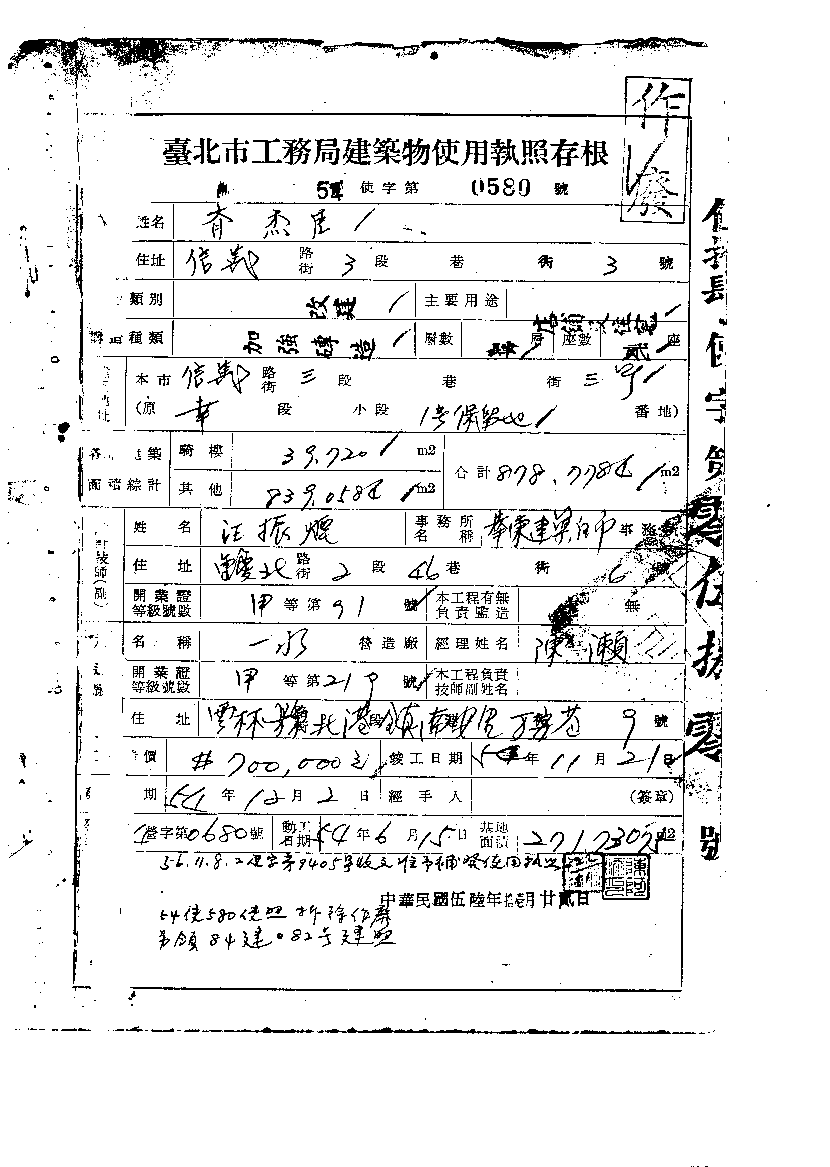 作廢
臺北市工務局建築物使用執照存根
54 使字第 0580 號
姓名 齊杰臣
住址 信義 路街 3 段 巷 衖 3 號
類別 改建 主要用途 店鋪及住宅
種類 加強磚造 層數 肆層 座數 貳座
本市 信義 路街 三 段 巷 衖 三號
(原 段 小段 番地)
建築 騎樓 39.720 m2 合計 878.7784 m2
面積綜計 其他 839.0584 m2
姓名 汪振焜 事務所名稱 華東建築師事務所
住址 重慶北 路街 2 段 46 巷 衖 6 號
開業證等級號數 甲等第 91 號 本工程有無負責監造 無
名稱 一永 營造廠 經理姓名 陳瀨
開業證等級號數 甲等第 219 號 本工程負責技師副姓名
住址 雲林 北港鎮 9 號
價 #700,000元 竣工日期 54年11月21日
期 54年12月2日 經手人 (簽章)
營字第0680號 動工日期 54年6月15日 基地面積 271.7305 M2
56.11.8. 字第9405號收文 補發使用執照
中華民國伍陸年拾壹月廿貳日
54使580使照拆除作廢
另領84建082号建照
使執長使字第零伍捌零號